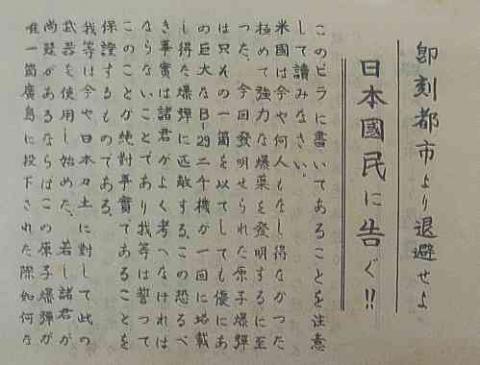 即刻都市より退避せよ
日本國民に告ぐ!!
このビラに書いてあることを注意
して讀みなさい。
米國は今や何人もなし得なかつた
極めて強力な爆薬を發明するに至
つた。今回發明せられた原子爆彈
は只その一箇を以てしても優にあ
の巨大なB-29二千機が一回に搭載
し得た爆彈に匹敵する。この恐るべ
き事實は諸君がよく考へなければ
ならないことであり我等は誓つて
このことが絶對事實であることを
保證するものである。
我等は今や日本々土に對して此の
武器を使用し始めた。若し諸君が
尚疑があるならばこの原子爆彈が
唯一箇廣島に投下された際如何な